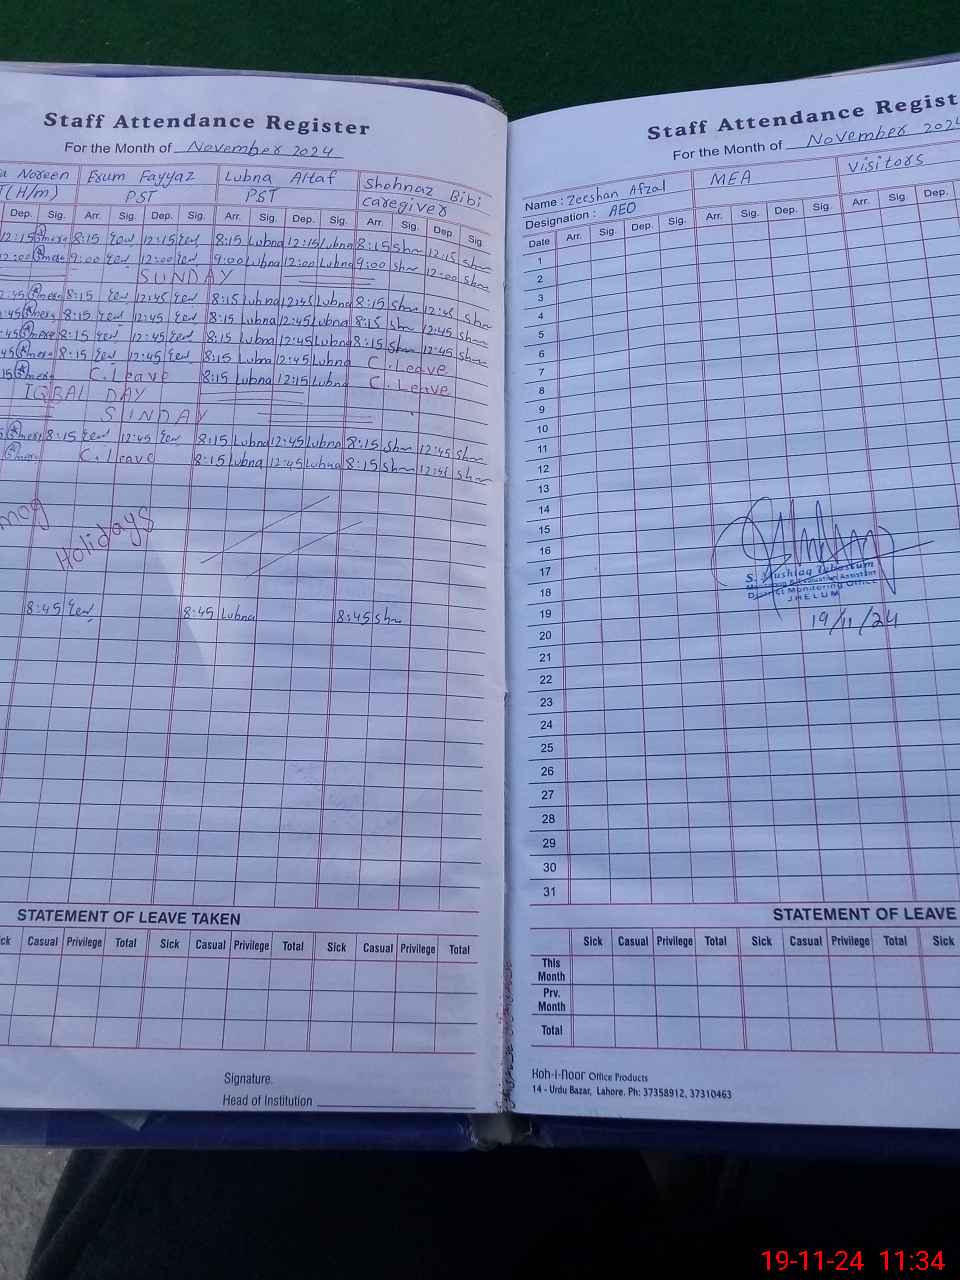 Staff Attendance Register
For the Month of November 2024
Noreen Erum Fayyaz Lubna Altaf Shahnaz Bibi
(H/m) PST PST caregiver
Dep. Sig. Arr. Sig. Dep. Sig. Arr. Sig. Dep. Sig. Arr. Sig. Dep. Sig.
12:15 8:15 12:15 8:15 Lubna 12:15 Lubna 8:15 12:15
12:00 9:00 12:00 9:00 Lubna 12:00 Lubna 9:00 12:00
SUNDAY
2:45 8:15 12:45 8:15 Lubna 12:45 Lubna 8:15 12:45
:45 8:15 12:45 8:15 Lubna 12:45 Lubna 8:15 12:45
:45 8:15 12:45 8:15 Lubna 12:45 Lubna 8:15 12:45
45 8:15 12:45 8:15 Lubna 12:45 Lubna C.Leave
15 C.Leave 8:15 Lubna 12:15 Lubna C.Leave
IQBAL DAY
SUNDAY
8:15 12:45 8:15 Lubna 12:45 Lubna 8:15 12:45
C.Leave 8:15 Lubna 12:45 Lubna 8:15 12:45
mog
Holidays
8:45 8:45 Lubna 8:45
STATEMENT OF LEAVE TAKEN
ck Casual Privilege Total Sick Casual Privilege Total Sick Casual Privilege Total
Signature.
Head of Institution
Staff Attendance Regist
For the Month of November 2024
Name : Zeeshan Afzal MEA Visitors
Designation : AEO
Date Arr. Sig. Dep. Sig. Arr. Sig. Dep. Sig. Arr. Sig. Dep.
1
2
3
4
5
6
7
8
9
10
11
12
13
14
15
16
17
S. Mushtaq Tabassum
Monitoring & Evaluation Assistant
18
District Monitoring Office
JHELUM
19 19/11/24
20
21
22
23
24
25
26
27
28
29
30
31
STATEMENT OF LEAVE
Sick Casual Privilege Total Sick Casual Privilege Total Sick
This
Month
Prv.
Month
Total
Koh-i-noor Office Products
14 - Urdu Bazar, Lahore. Ph: 37358912, 37310463
19-11-24 11:34